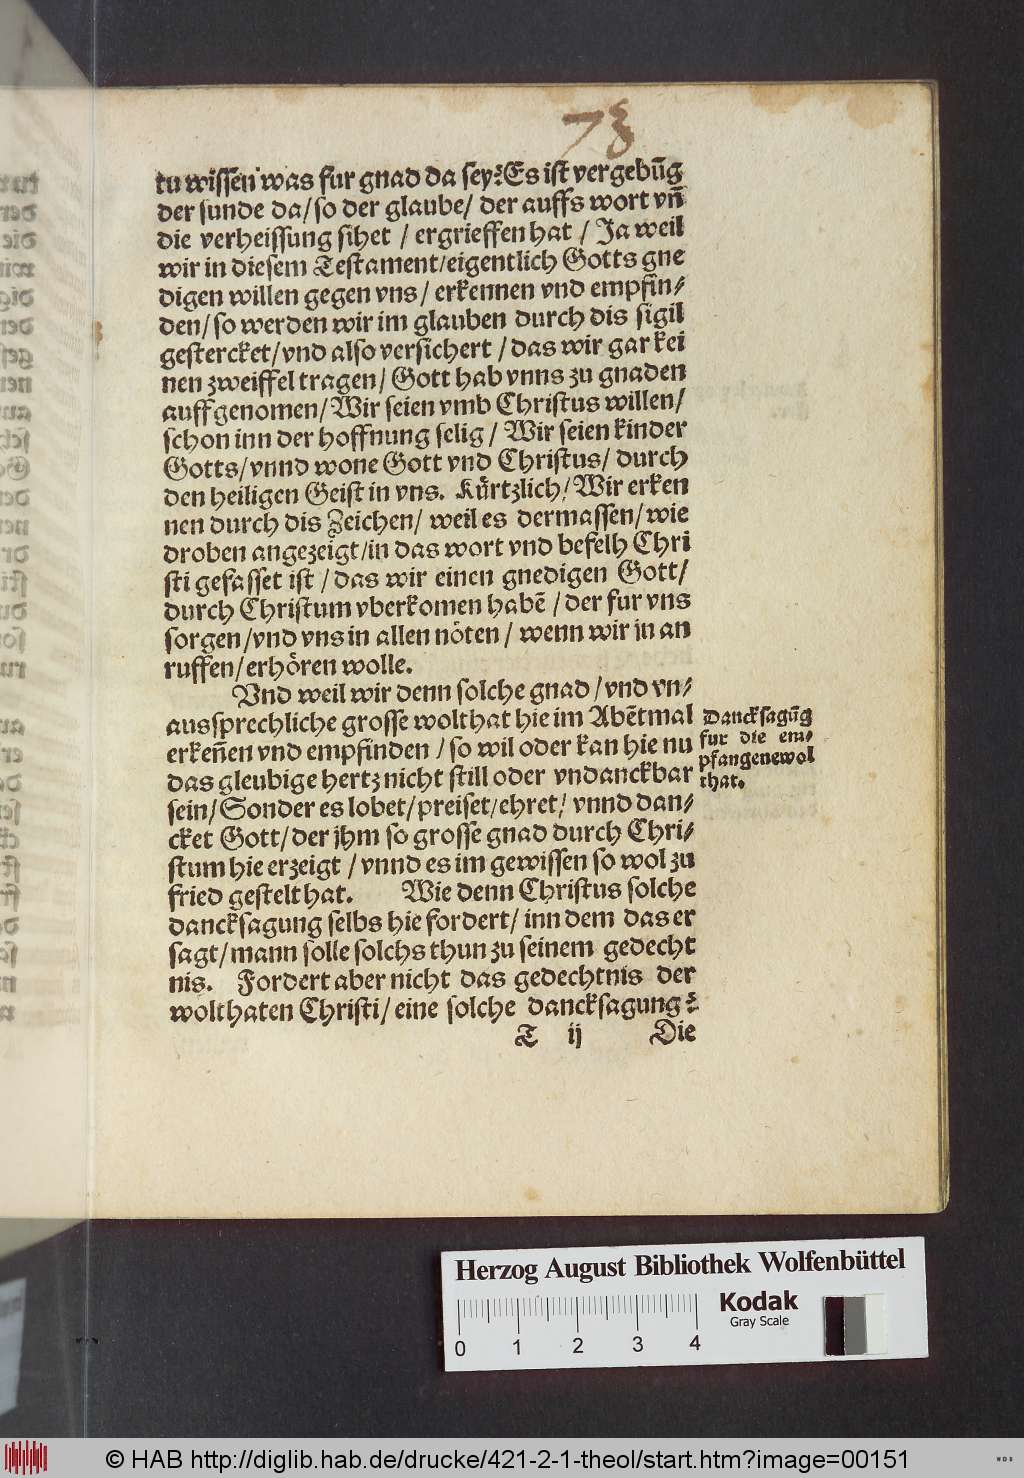 73
tu wissen was fur gnad da sey? Es ist vergebūg
der sunde da/ so der glaube/ der auffs wort vn̄
die verheissung sihet / ergrieffen hat / Ja weil
wir in diesem Testament/ eigentlich Gotts gne
digen willen gegen vns/ erkennen vnd empfin⸗
den/ so werden wir im glauben durch dis sigil
gestercket/ vnd also versichert / das wir gar kei
nen zweiffel tragen/ Gott hab vnns zu gnaden
auffgenomen/ Wir seien vmb Christus willen/
schon inn der hoffnung selig / Wir seien kinder
Gotts/ vnnd wone Gott vnd Christus/ durch
den heiligen Geist in vns. Kürtzlich/ Wir erken
nen durch dis Zeichen/ weil es dermassen/ wie
droben angezeigt/ in das wort vnd befelh Chri
sti gefasset ist / das wir einen gnedigen Gott/
durch Christum vberkomen habē / der fur vns
sorgen/ vnd vns in allen nöten / wenn wir in an
ruffen/ erhören wolle.
Vnd weil wir denn solche gnad / vnd vn⸗
aussprechliche grosse wolthat hie im Abētmal
erkeñen vnd empfinden / so wil oder kan hie nu
das gleubige hertz nicht still oder vndanckbar
sein/ Sonder es lobet/ preiset/ ehret/ vnnd dan⸗
cket Gott/ der jhm so grosse gnad durch Chri⸗
stum hie erzeigt / vnnd es im gewissen so wol zu
fried gestelt hat. Wie denn Christus solche
dancksagung selbs hie fordert/ inn dem das er
sagt/ mann solle solchs thun zu seinem gedecht
nis. Fordert aber nicht das gedechtnis der
wolthaten Christi/ eine solche dancksagung?
T ij Die
Dancksagūg
fur die em⸗
pfangene wol
that.
Herzog August Bibliothek Wolfenbüttel
0 1 2 3 4
Kodak
Gray Scale
© HAB http://diglib.hab.de/drucke/421-2-1-theol/start.htm?image=00151